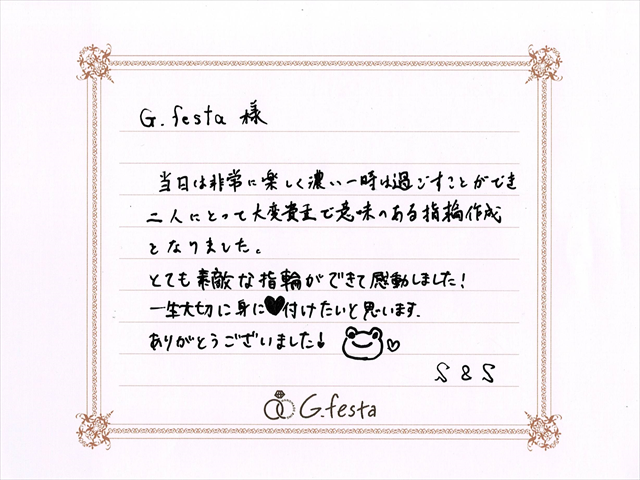 G.festa 様
当日は非常に楽しく濃い一時は過ごすことができ
二人にとって大変貴重で意味のある指輪作成
となりました。
とても素敵な指輪ができて感動しました!
一生大切に身に♥付けたいと思います.
ありがとうございました!
S & S
G.festa